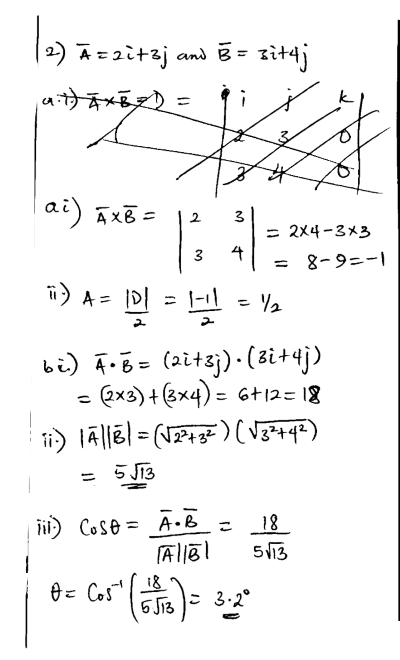 2) Ā = 2i+3j and B̄ = 3i+4j
a.i) Ā×B̄ = D = | i j k
2 3 0
3 4 0 |
ai) Ā×B̄ = | 2 3
3 4 | = 2×4-3×3
= 8-9=-1
ii) A = |D|/2 = |-1|/2 = 1/2
bi.) Ā·B̄ = (2i+3j)·(3i+4j)
= (2×3)+(3×4) = 6+12 = 18
ii.) |Ā||B̄| = (√2²+3²)(√3²+4²)
= 5√13
iii) Cosθ = Ā·B̄/|Ā||B̄| = 18/5√13
θ = Cos⁻¹(18/5√13) = 3.2°